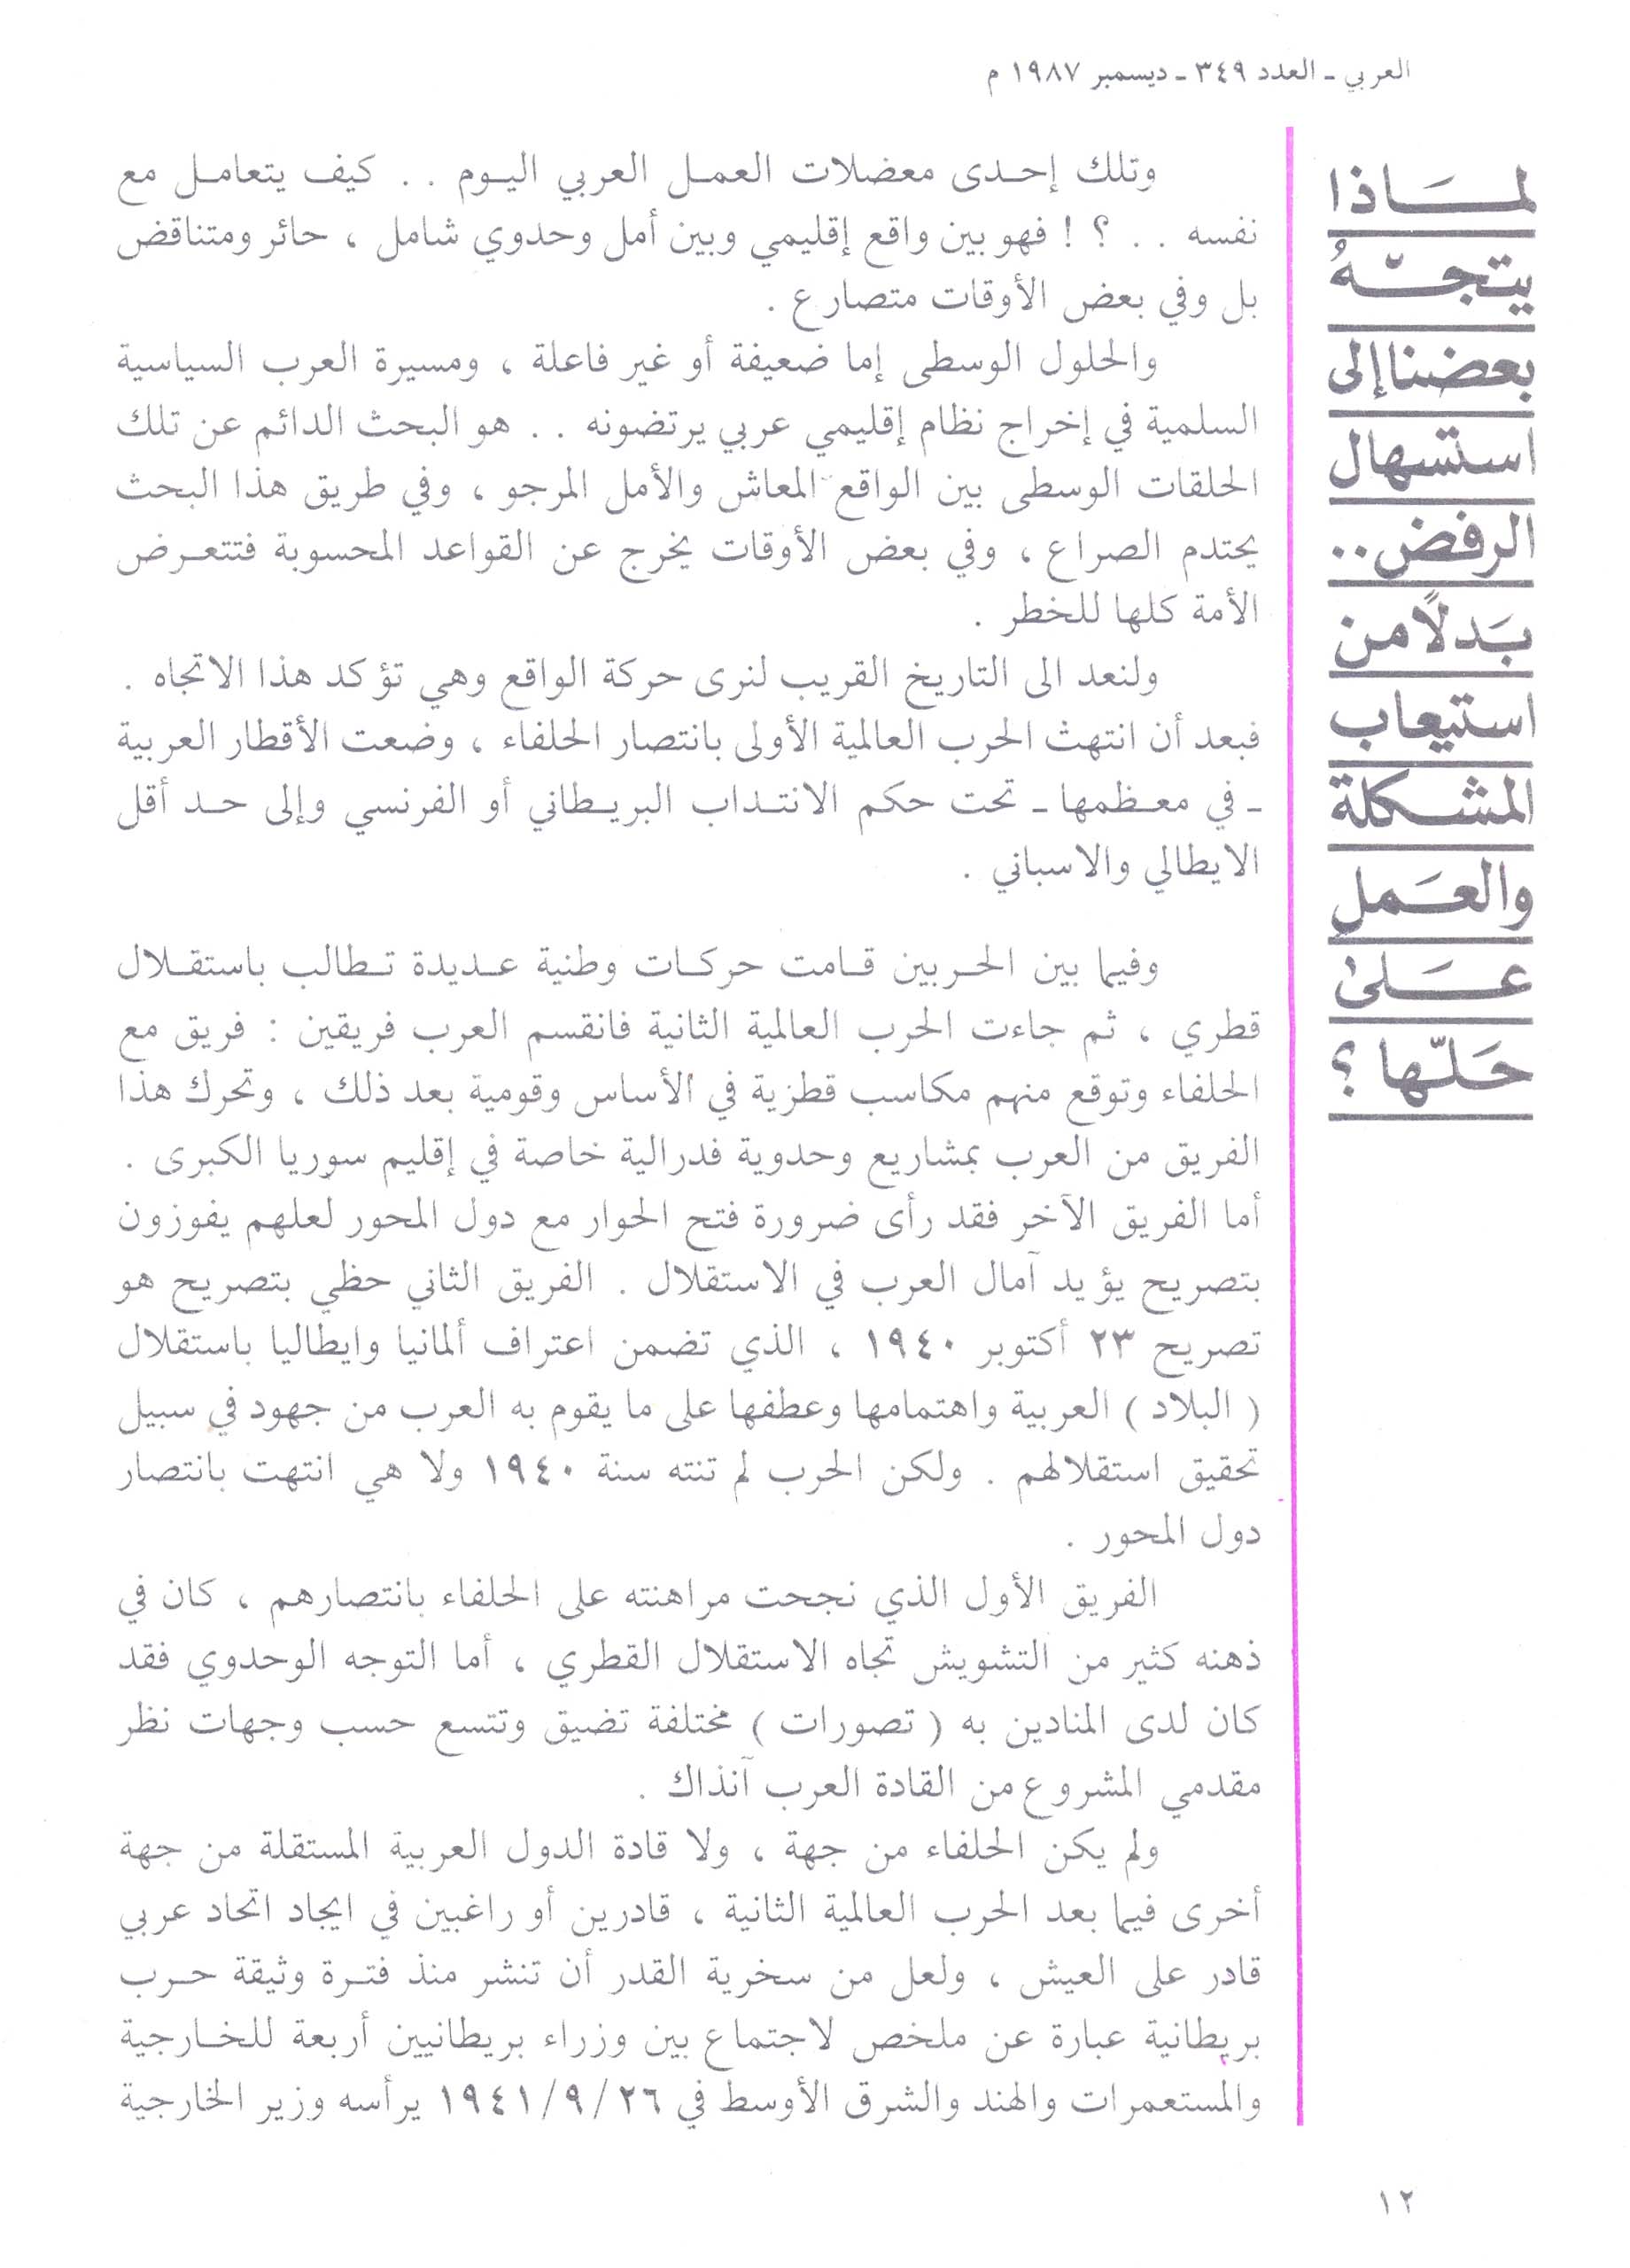 العربي ـ العدد ٣٤٩ ـ ديسمبر ١٩٨٧ م
لماذا
يتجّهُ
بعضنا إلى
استسهال
الرفض..
بَدلاً من
استيعاب
المشكلة
والعَمل
عَلى
حَلّها ؟
وتلك إحدى معضلات العمل العربي اليوم . . كيف يتعامل مع
نفسه . . ؟ ! فهو بين واقع إقليمي وبين أمل وحدوي شامل ، حائر ومتناقض
بل وفي بعض الأوقات متصارع .
والحلول الوسطى إما ضعيفة أو غير فاعلة ، ومسيرة العرب السياسية
السلمية في إخراج نظام إقليمي عربي يرتضونه . . هو البحث الدائم عن تلك
الحلقات الوسطى بين الواقع المعاش والأمل المرجو ، وفي طريق هذا البحث
يحتدم الصراع ، وفي بعض الأوقات يخرج عن القواعد المحسوبة فتتعرض
الأمة كلها للخطر .
ولنعد الى التاريخ القريب لنرى حركة الواقع وهي تؤكد هذا الاتجاه .
فبعد أن انتهت الحرب العالمية الأولى بانتصار الحلفاء ، وضعت الأقطار العربية
ـ في معظمها ـ تحت حكم الانتداب البريطاني أو الفرنسي وإلى حد أقل
الايطالي والاسباني .
وفيما بين الحربين قامت حركات وطنية عديدة تطالب باستقلال
قطري ، ثم جاءت الحرب العالمية الثانية فانقسم العرب فريقين : فريق مع
الحلفاء وتوقع منهم مكاسب قطرية في الأساس وقومية بعد ذلك ، وتحرك هذا
الفريق من العرب بمشاريع وحدوية فدرالية خاصة في إقليم سوريا الكبرى .
أما الفريق الآخر فقد رأى ضرورة فتح الحوار مع دول المحور لعلهم يفوزون
بتصريح يؤيد آمال العرب في الاستقلال . الفريق الثاني حظي بتصريح هو
تصريح ٢٣ أكتوبر ١٩٤٠ ، الذي تضمن اعتراف ألمانيا وايطاليا باستقلال
( البلاد ) العربية واهتمامها وعطفها على ما يقوم به العرب من جهود في سبيل
تحقيق استقلالهم . ولكن الحرب لم تنته سنة ١٩٤٠ ولا هي انتهت بانتصار
دول المحور .
الفريق الأول الذي نجحت مراهنته على الحلفاء بانتصارهم ، كان في
ذهنه كثير من التشويش تجاه الاستقلال القطري ، أما التوجه الوحدوي فقد
كان لدى المنادين به ( تصورات ) مختلفة تضيق وتتسع حسب وجهات نظر
مقدمي المشروع من القادة العرب آنذاك .
ولم يكن الحلفاء من جهة ، ولا قادة الدول العربية المستقلة من جهة
أخرى فيما بعد الحرب العالمية الثانية ، قادرين أو راغبين في ايجاد اتحاد عربي
قادر على العيش ، ولعل من سخرية القدر أن تنشر منذ فترة وثيقة حرب
بريطانية عبارة عن ملخص لاجتماع بين وزراء بريطانيين أربعة للخارجية
والمستعمرات والهند والشرق الأوسط في ٢٦ /٩ /١٩٤١ يرأسه وزير الخارجية
١٢